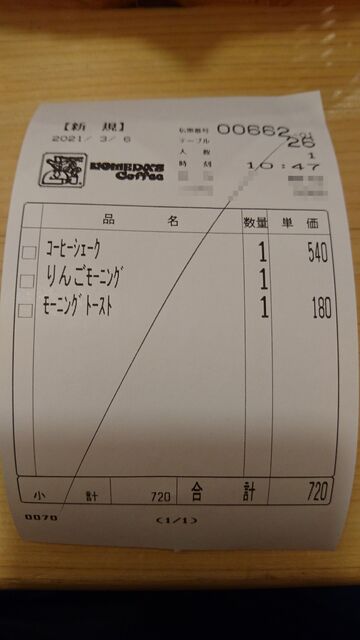 【新 規】
伝票番号 00662-01
2021/ 3/ 6
テーブル 26
人 数 1
時 刻 10:47
KOMEDA'S
Coffee
品 名 数量 単価
コーヒーシェーク 1 540
りんごモーニング 1
モーニングトースト 1 180
小 計 720 合 計 720
0070 (1/1)